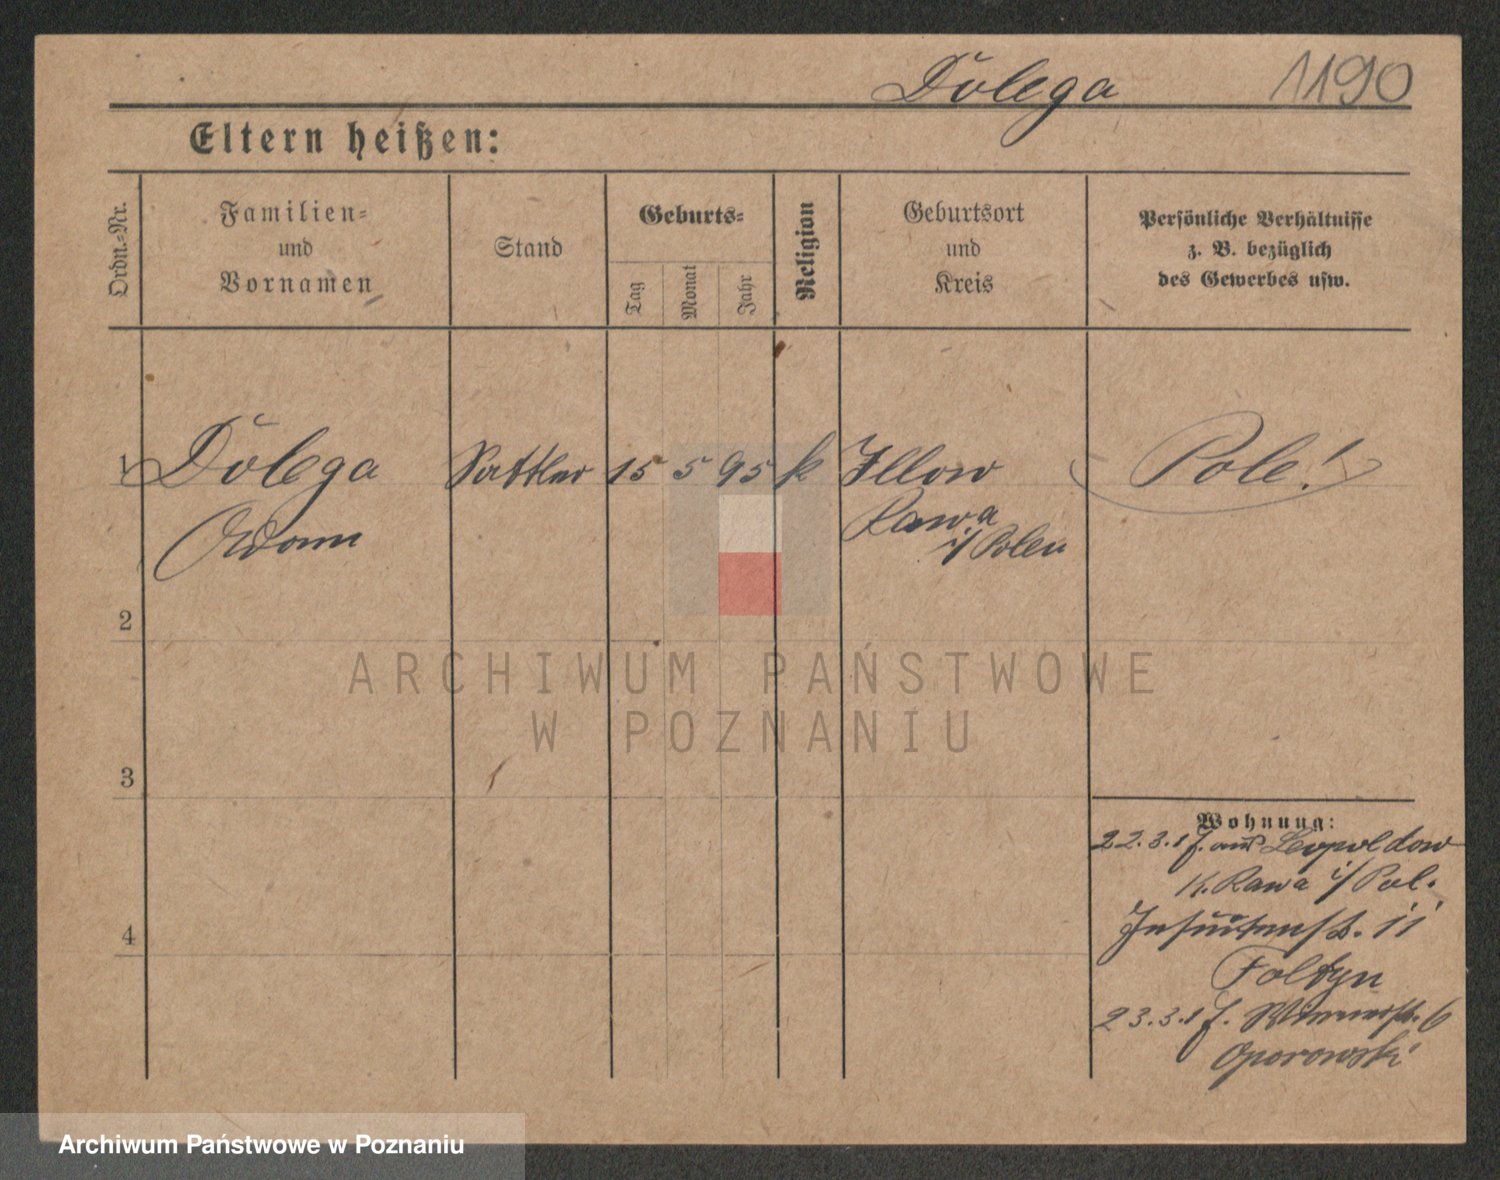 Dolega 1190
Eltern heißen:
Ordn.-Nr.
Familien-
und
Vornamen
Stand
Geburts-
Tag
Monat
Jahr
Religion
Geburtsort
und
Kreis
Persönliche Verhältnisse
z. B. bezüglich
des Gewerbes usw.
1 Dolega Sattler 15 5 95 k Illow Pole!
Adam Rawa
i/Polen
2
3
4
ARCHIWUM PAŃSTWOWE
W POZNANIU
Wohnung:
22.3.17. aus Leopoldow
K. Rawa i/Pol.
Jesuitenstr. 11
Foltyn
23.3.17. 6
Oporowski
Archiwum Państwowe w Poznaniu